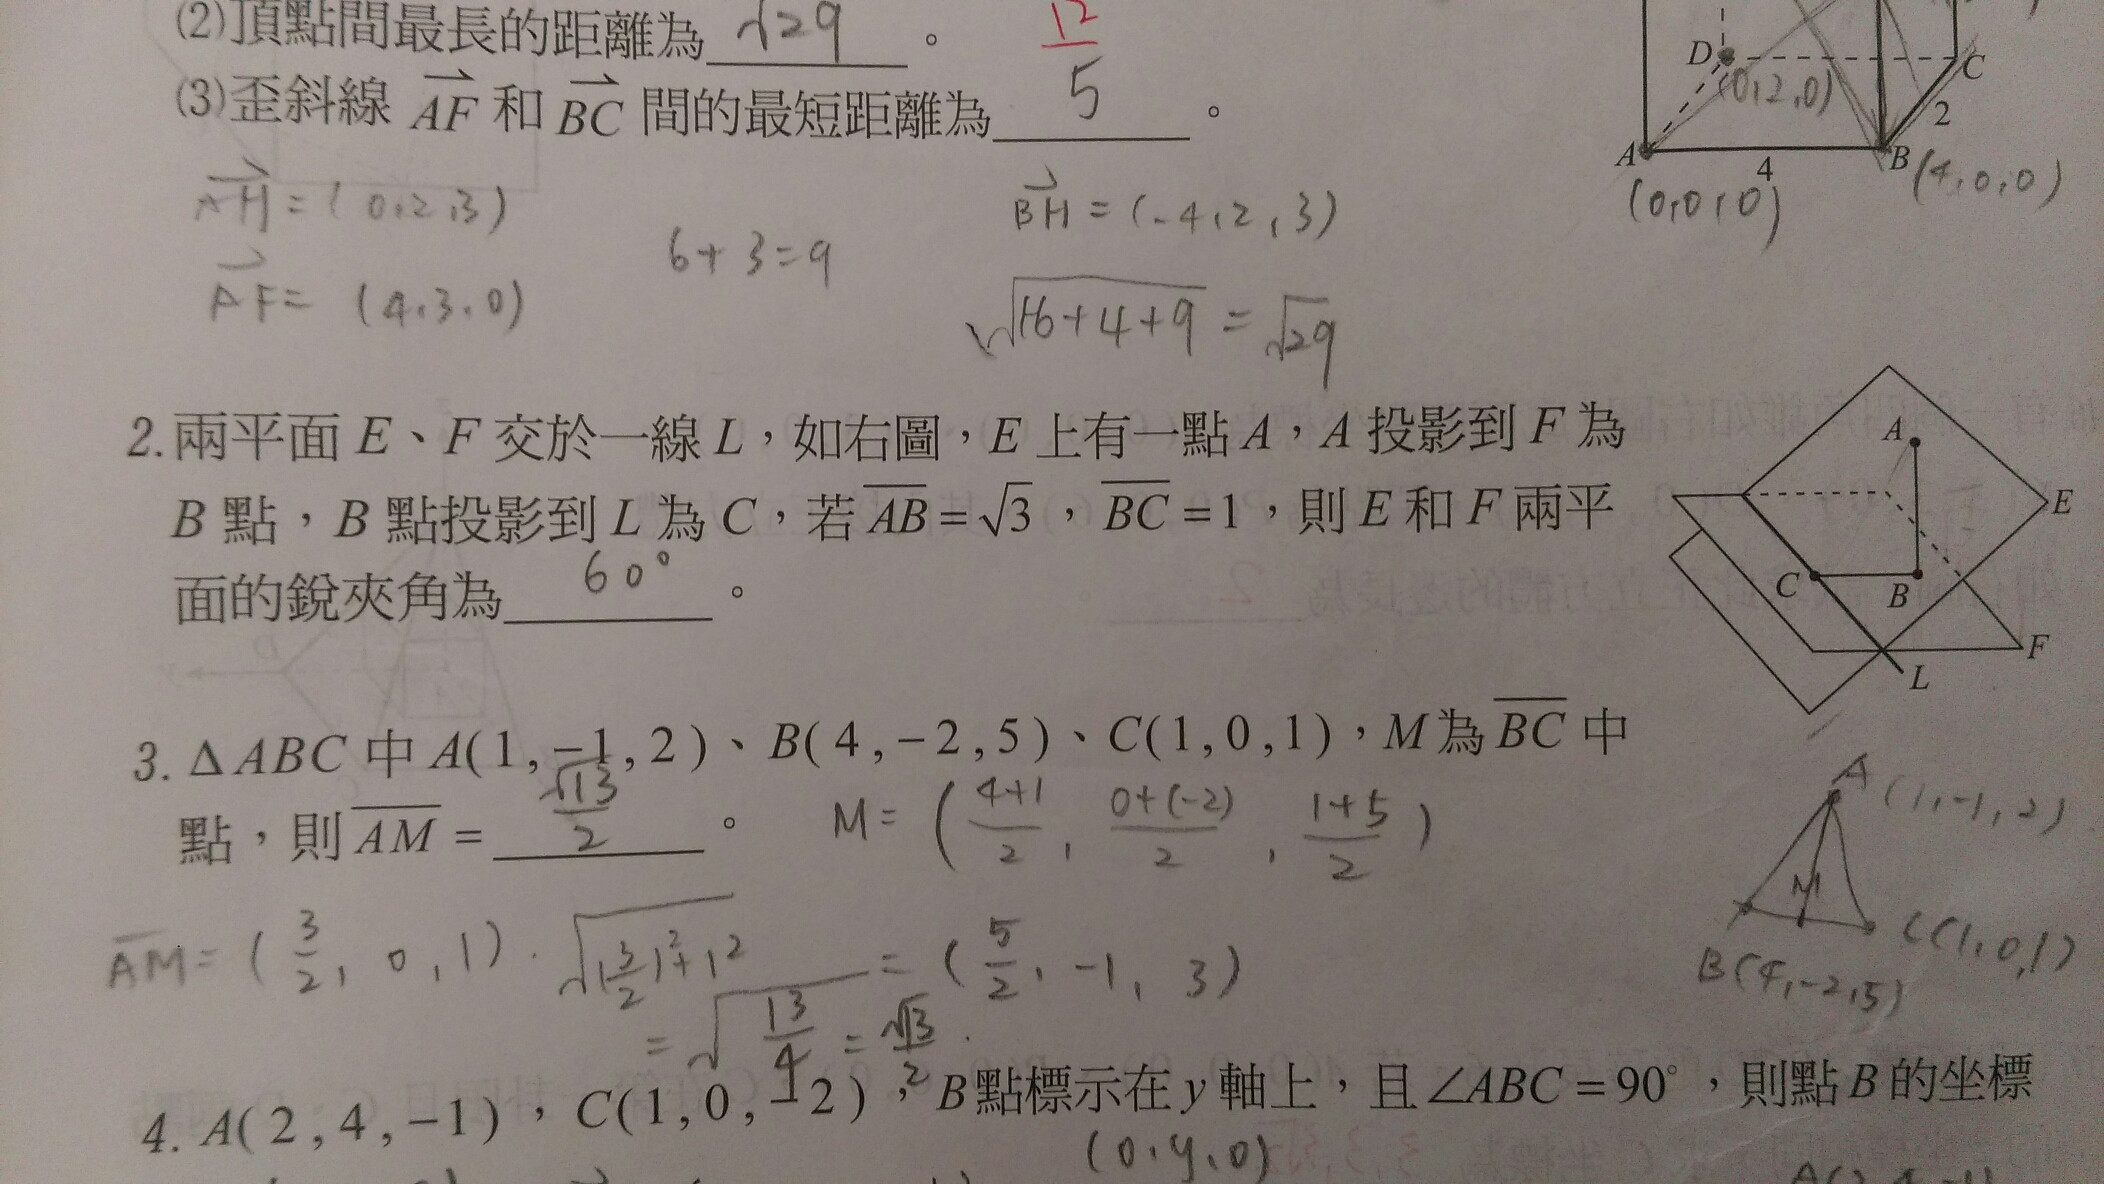 (2)頂點間最長的距離為 √29 。
(3)歪斜線 AF 和 BC 間的最短距離為 12/5 。
D
(0,2,0)
C
2
A
4
B
(4,0,0)
(0,0,0)
AH = (0,2,3)
6+3=9
BH = (-4,2,3)
AF = (4,3,0)
√16+4+9 = √29
2.兩平面 E、F 交於一線 L,如右圖,E 上有一點 A,A 投影到 F 為
B 點,B 點投影到 L 為 C,若 AB = √3,BC = 1,則 E 和 F 兩平
面的銳夾角為 60° 。
A
E
C
B
F
L
3. ΔABC 中 A(1,−1,2)、B(4,−2,5)、C(1,0,1),M 為 BC 中
點,則 AM = √13/2 。
M = (4+1/2, 0+(-2)/2, 1+5/2)
A (1,-1,2)
M
B(4,-2,5)
C(1,0,1)
AM = (3/2, 0, 1). √(3/2)²+1²
= (5/2, -1, 3)
= √13/4 = √13/2.
4. A(2,4,−1),C(1,0,−2),B 點標示在 y 軸上,且∠ABC = 90°,則點 B 的坐標
(0,y,0)